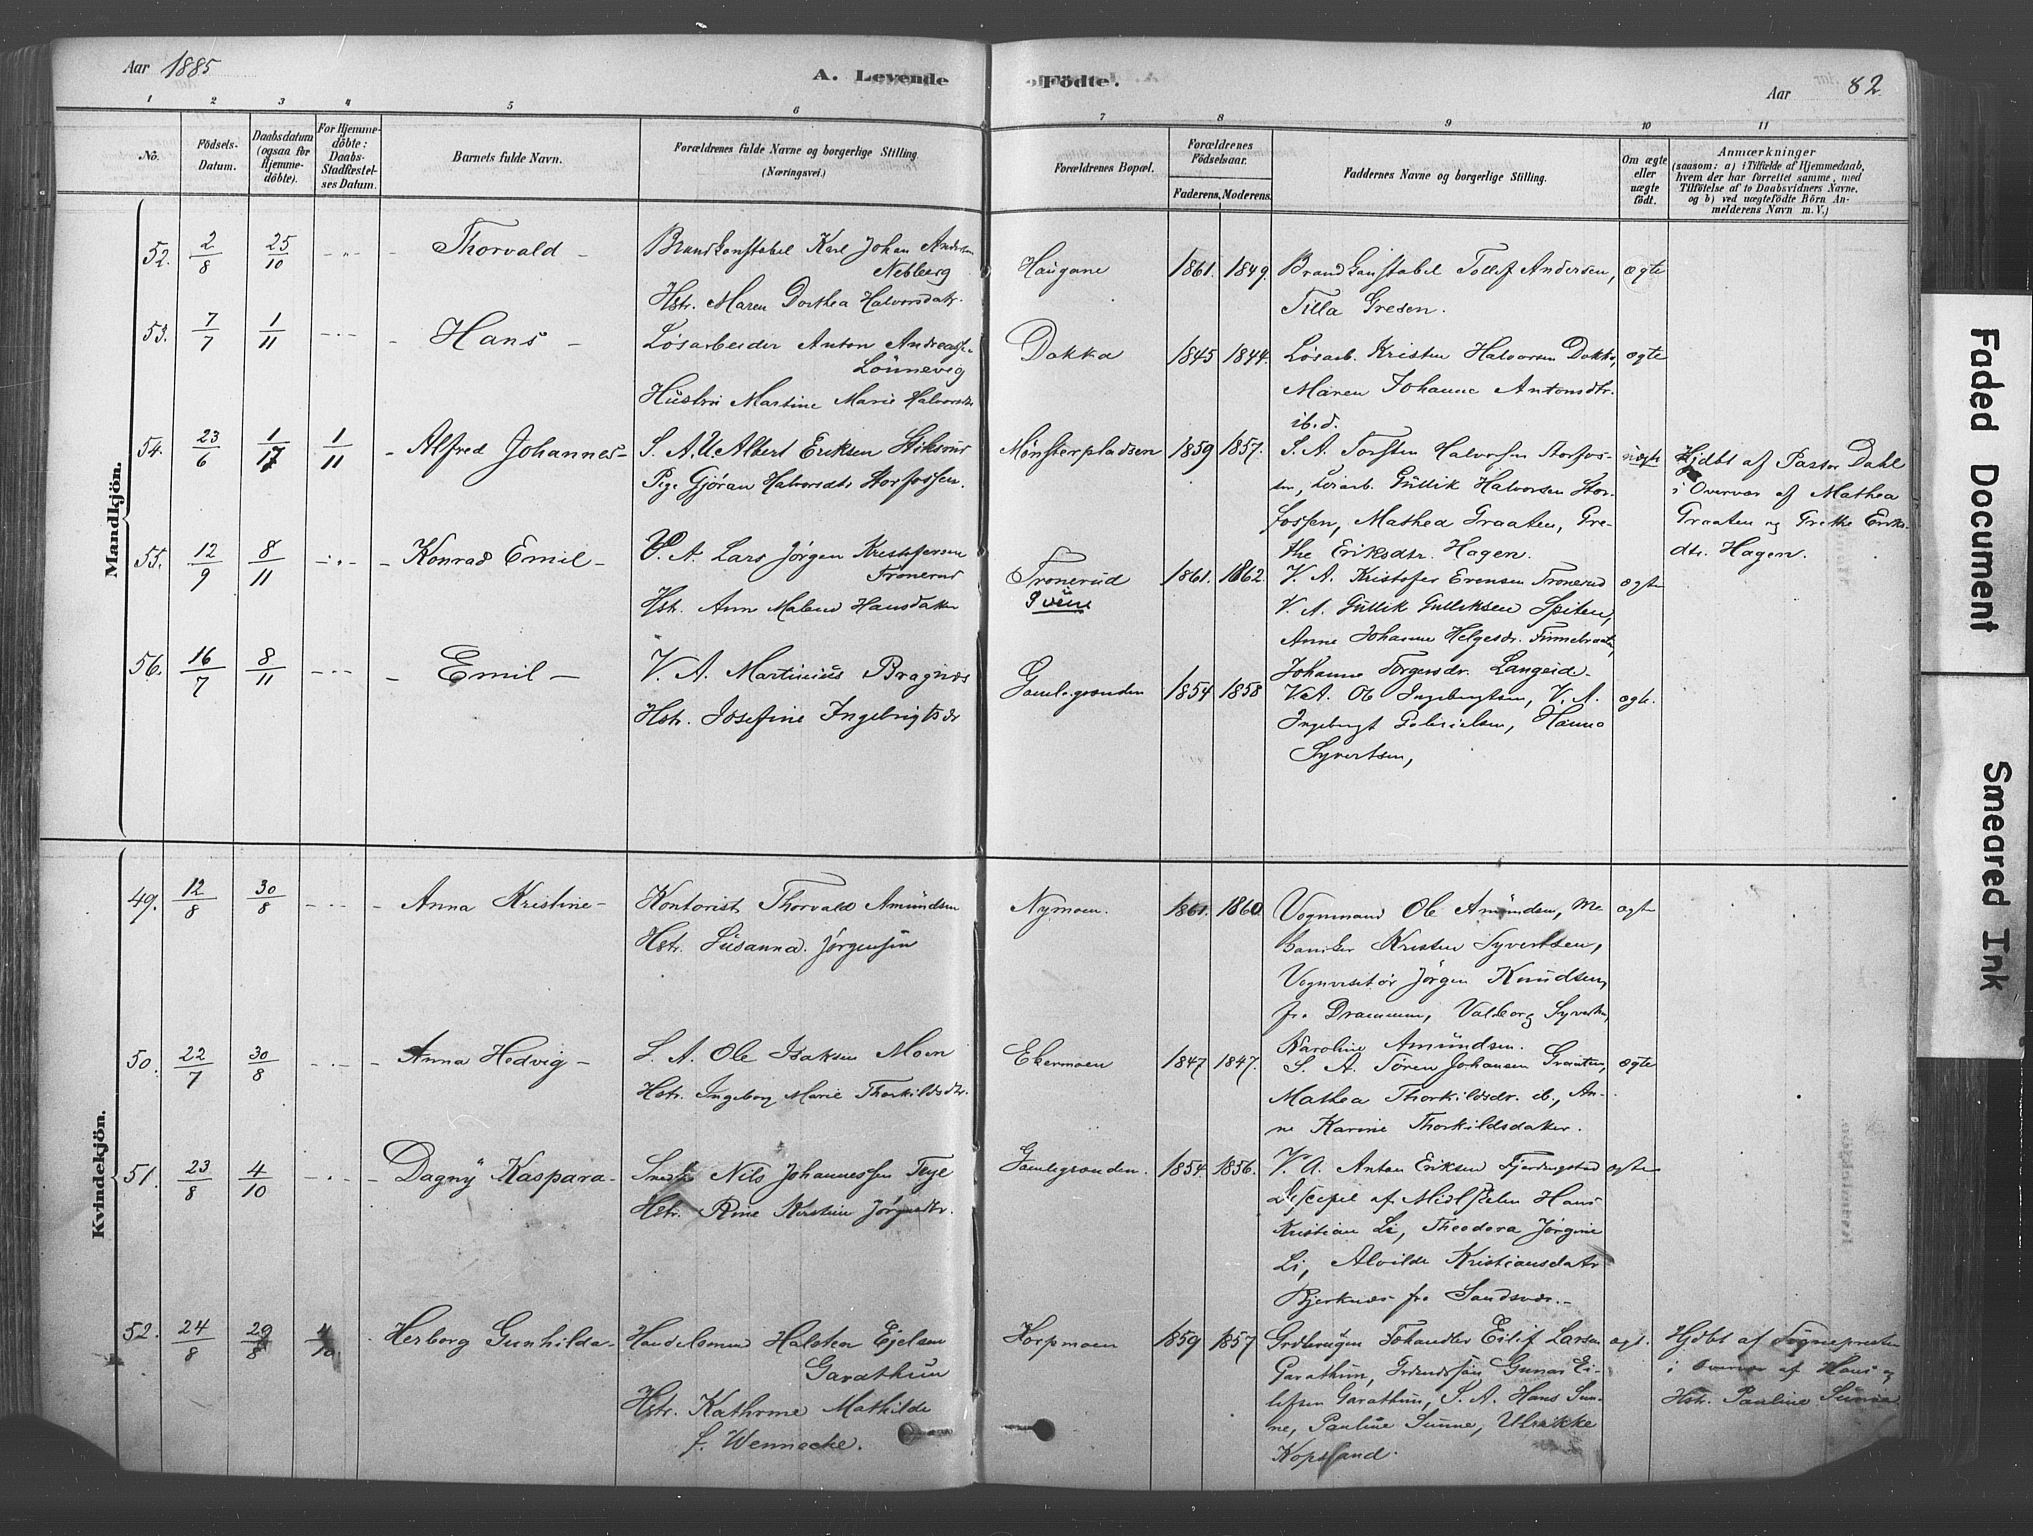 Aar 1885
A. Levende Födte.
Aar 82
1 2 3 4 5 6 7 8 9 10 11
No.
Födsels-Datum.
Daabsdatum (ogsaa for Hjemme-döbte).
For Hjemme-döbte: Daabs-Stadfæstel-ses Datum.
Barnets fulde Navn.
Forældrenes fulde Navne og borgerlige Stilling (Næringsvei.)
Forældrenes Bopæl.
Forældrenes Födselsaar.
Faderens. Moderens.
Faddernes Navne og borgerlige Stilling.
Om ægte eller uægte födt.
Anmærkninger
(saasom: a) i Tilfælde af Hjemmedaab,
hvem der har forrettet samme, med
Tilföielse af to Daabsvidners Navne,
og b) ved uægtefödte Börn An-
melderens Navn m. V.)
Mandkjön.
52. 2/8 25/10 - " - Thorvald -
Brandkonstabel Karl Johan Andersen
Nebberg
Hstr. Maren Dorthea Halvorsdatr.
Haugane 1861. 1849.
Brandkonstabel Tollef Andersen,
Tilla Gresen.
ægte
53. 7/7 1/11 - " - Hans -
Løsarbeider Anton Andreas
Lönnevig
Hustru Martine Marie Halvorsdr
Dokka 1845 1844.
Løsarb. Kristen Halvorsen Dokka,
Maren Johanne Antonsdtr.
ibid.
ægte
54. 23/6 1/17 1/11 - Alfred Johannes -
S. A. U Albert Eriksen
Pige Gjöran Halvorsdtr Storfossen.
Mønsterpladsen 1859 1857.
S. A. Torsten Halvorsen Storfos-
sen, Løsarb. Gullik Halvorsen Stor-
fossen, Mathea Graaten, Gre-
the Eriksdtr. Hagen.
uægte
Hjdbt af Pastor Dahl
i Overvær af Mathea
Graaten og Grethe Eriks-
dtr. Hagen.
55. 12/9 8/11 - " - Konrad Emil -
V. A. Lars Jörgen Kristofersen
Tronerud
Hstr. Anne Malene Hansdater
Tronerud
1861. 1862.
V. A. Kristofer Evensen Tronerud
V. A. Gullik Gulliksen Spiten,
Anne Johanne Helgesdr. Finnebraaten,
Johanne Torgersdr. Langeid.
ægte
56. 16/7 8/11 - " - Emil -
V. A. Martinius Bragnæs
Hstr. Josefine Ingebrigtsdr
Gamlegrænden 1854 1858
V. A. Ole Ingebrigtsen, V. A.
Ingebrigt Gabrielsen, Hanna
Syvertsen,
ægte.
Kvindekjön.
49. 12/8 30/8 - " - Anna Kristine -
Kontorist Thorvald Amundsen
Hstr. Susanna Jørgensen
Nymoen. 1861. 1860
Vognmand Ole Amundsen, Me
kaniker Kristen Syvertsen,
Vognvisitør Jørgen Knudsen,
fra Drammen, Valborg Syvertsen,
Karoline Amundsen.
ægte
50. 22/7 30/8 - " - Anna Hedvig -
S. A. Ole Isaksen Moen
Hstr. Ingeborg Marie Thorkildsdtr.
Ekermoen 1847 1847.
S. A. Søren Johansen Graaten,
Mathea Thorkildsdr. ib., An-
ne Karine Thorkildsdater.
ægte
51. 23/8 4/10 - " - Dagny Kaspara -
Snedker Nils Johannessen Teye
Hstr. Rine Kerstine Jörgensdtr.
Gamlegrænden. 1854. 1856.
V. A. Anton Eriksen Fjerdingstad
Discipel af Midlskolen Hans
Kristian Li, Theodora Jørgine
Li, Alvilde Kristiansdatr
Bjerknæs fra Sandsvær. -
ægte
52. 24/8 29/8 4/10 - Herborg Gunhilda -
Handelsmand Halsten Ejelsen
Garathun
Hstr. Kathrine Mathilde
f. Wennecke.
Korpmoen 1859 1857
Grdbruger Fohandler Eilif Larsen
Garathun, Gunnar Ei-
lifsen Garathun, S. A. Hans Sun-
ne, Pauline Sunne, Ulrikke
Kopsland.
ægte.
Hjdbt af Sognepræsten
i overvær af Hans og
Hstr. Pauline Sunne
Faded Document
Smeared Ink